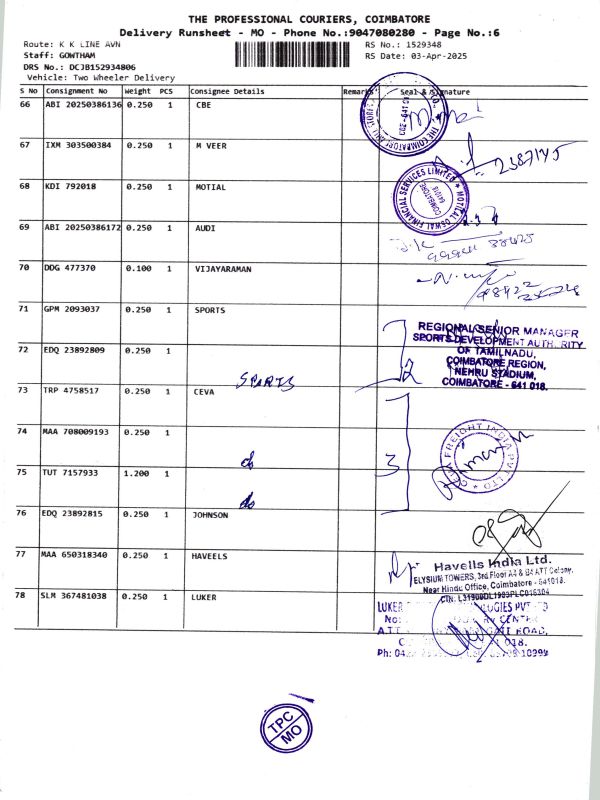 THE PROFESSIONAL COURIERS, COIMBATORE
Delivery Runsheet - MO - Phone No.:9047080280 - Page No.:6
Route: K K LINE AVN
RS No.: 1529348
Staff: GOWTHAM
RS Date: 03-Apr-2025
DRS No.: DCJB152934806
Vehicle: Two Wheeler Delivery
S No Consignment No Weight PCS Consignee Details Remarks Seal & Signature
66 ABI 20250386136 0.250 1 CBE
67 IXM 303500384 0.250 1 M VEER
68 KDI 792018 0.250 1 MOTIAL
MOTILAL OSWAL FINANCIAL SERVICES LIMITED
COIMBATORE
641018
69 ABI 20250386172 0.250 1 AUDI
70 DDG 477370 0.100 1 VIJAYARAMAN
71 GPM 2093037 0.250 1 SPORTS
REGIONAL SENIOR MANAGER
SPORTS DEVELOPMENT AUTHORITY
OF TAMILNADU,
COIMBATORE REGION,
NEHRU STADIUM,
COIMBATORE - 641 018.
72 EDQ 23892809 0.250 1
SPORTS
2
73 TRP 4758517 0.250 1 CEVA
74 MAA 708009193 0.250 1
do
3
75 TUT 7157933 1.200 1
do
76 EDQ 23892815 0.250 1 JOHNSON
77 MAA 650318340 0.250 1 HAVEELS
Havells India Ltd.
ELYSIUM TOWERS, 3rd Floor
Near Hindu Office, Coimbatore - 641018.
78 SLM 367481038 0.250 1 LUKER
LUKER
ROAD,
TPC
MO